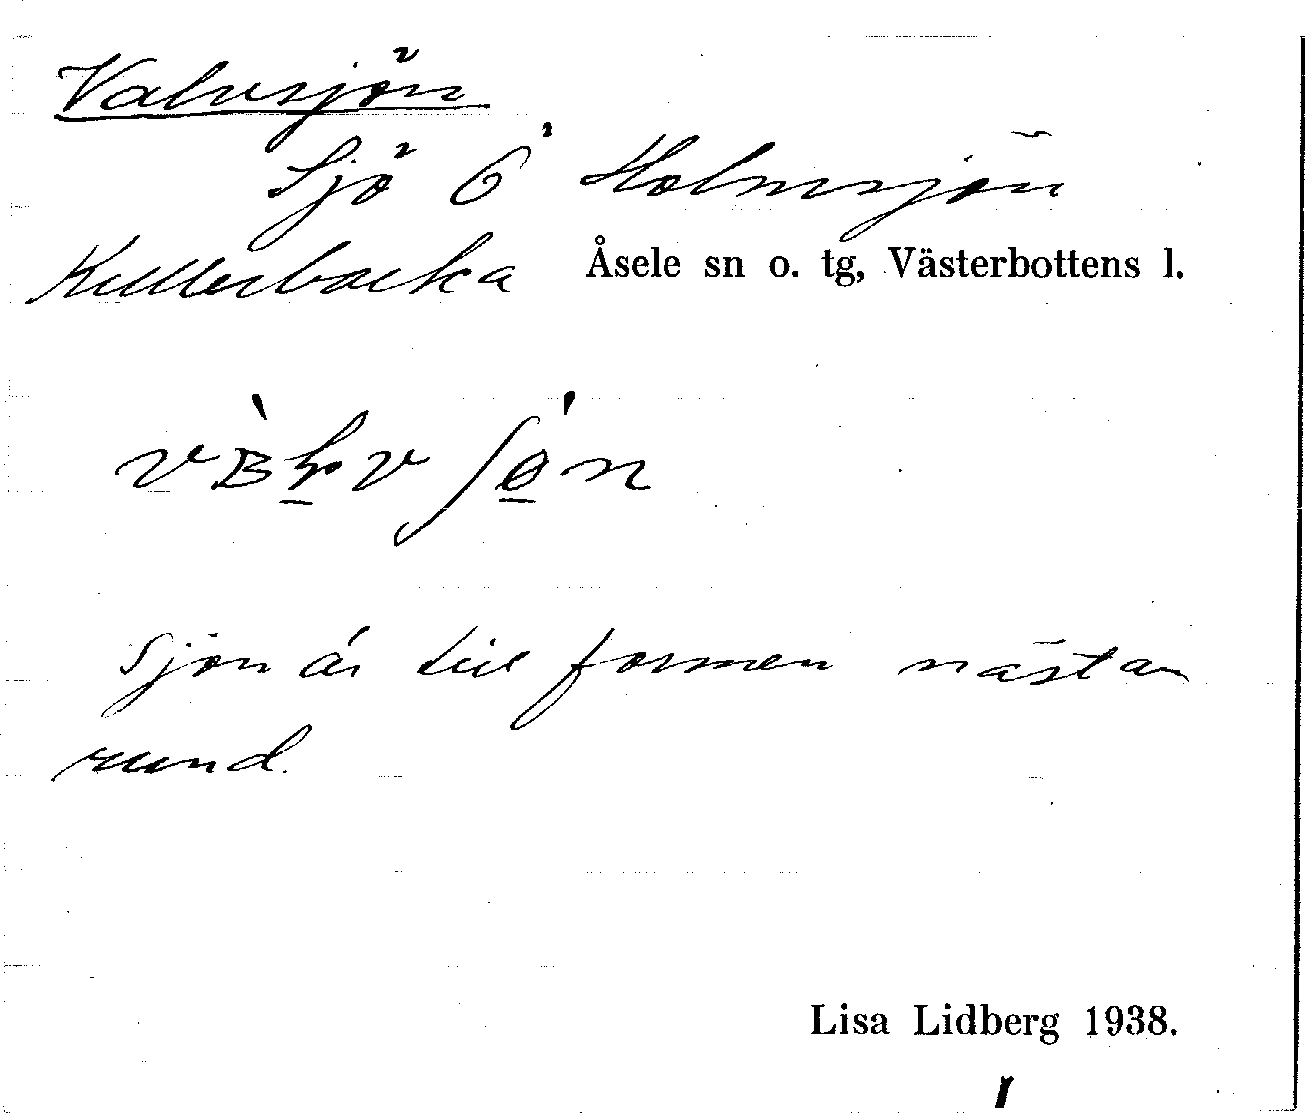 Valvsjön
Sjö Ö Holmsjön
Kullerbacka Åsele sn o. tg, Västerbottens l.
Sjön är till formen nästan
rund.
Lisa Lidberg 1938.